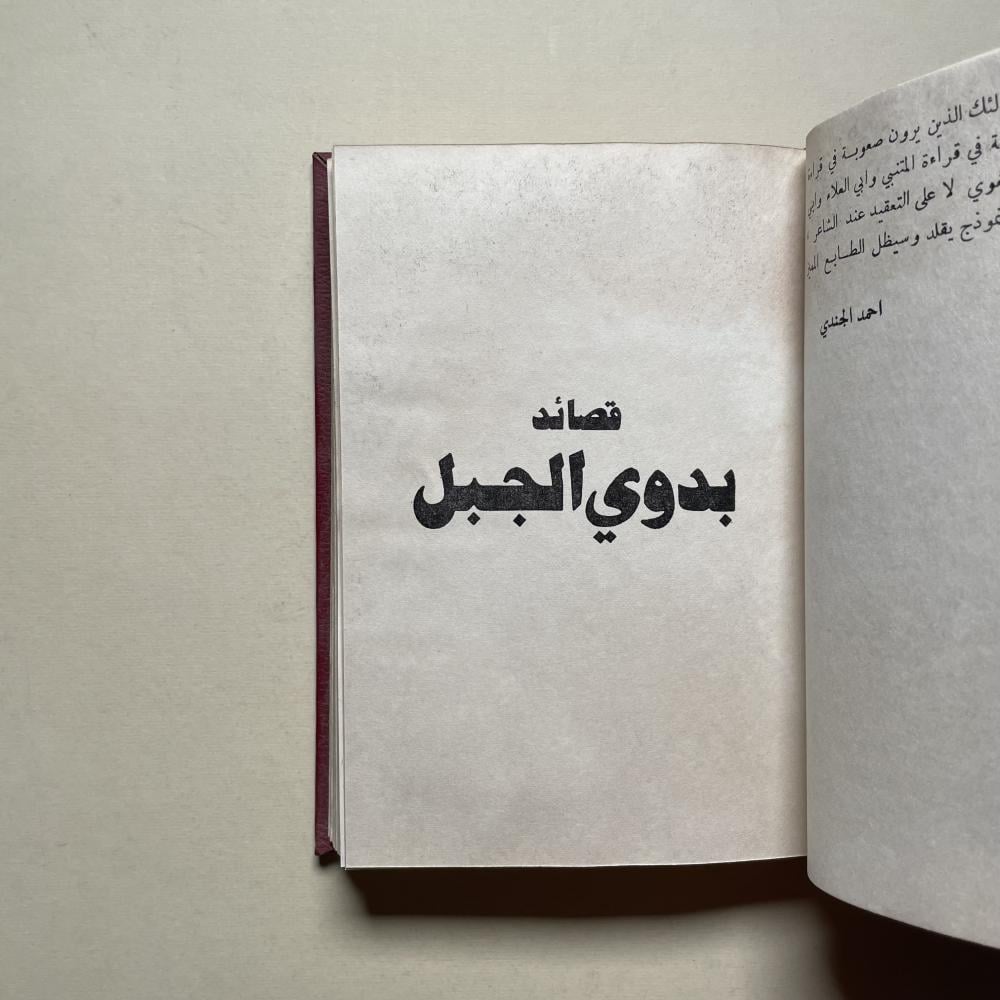 الذين يرون صعوبة في
في قراءة المتنبي وابي العلاء
لا على التعقيد عند الشاعر
يقلد وسيظل الطابع
احمد الجندي
قصائد
بدوي الجبل